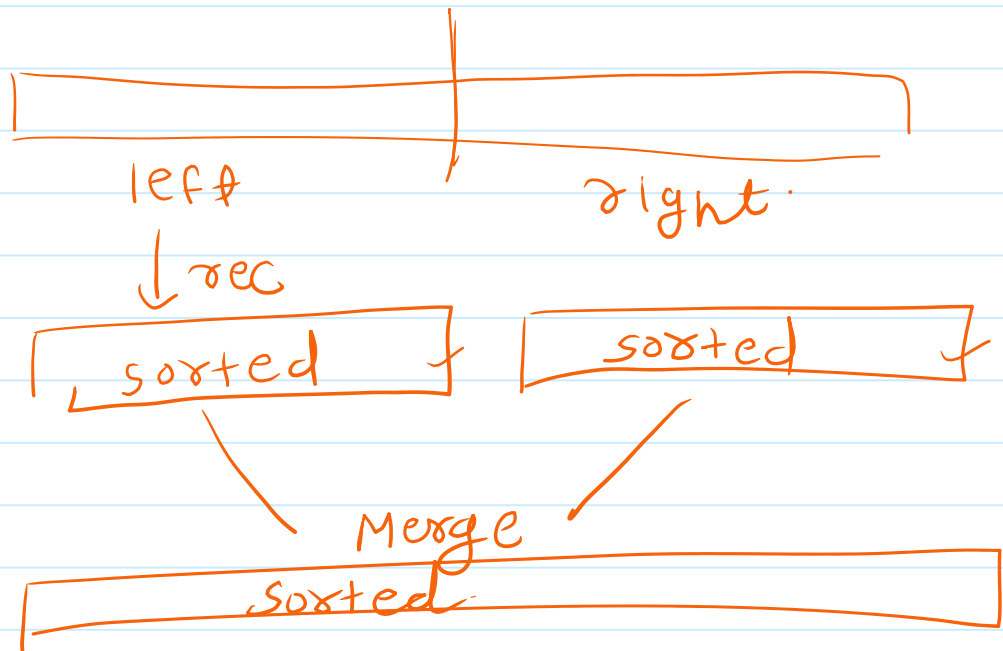 left
right.
rec
sorted
sorted
Merge
sorted.